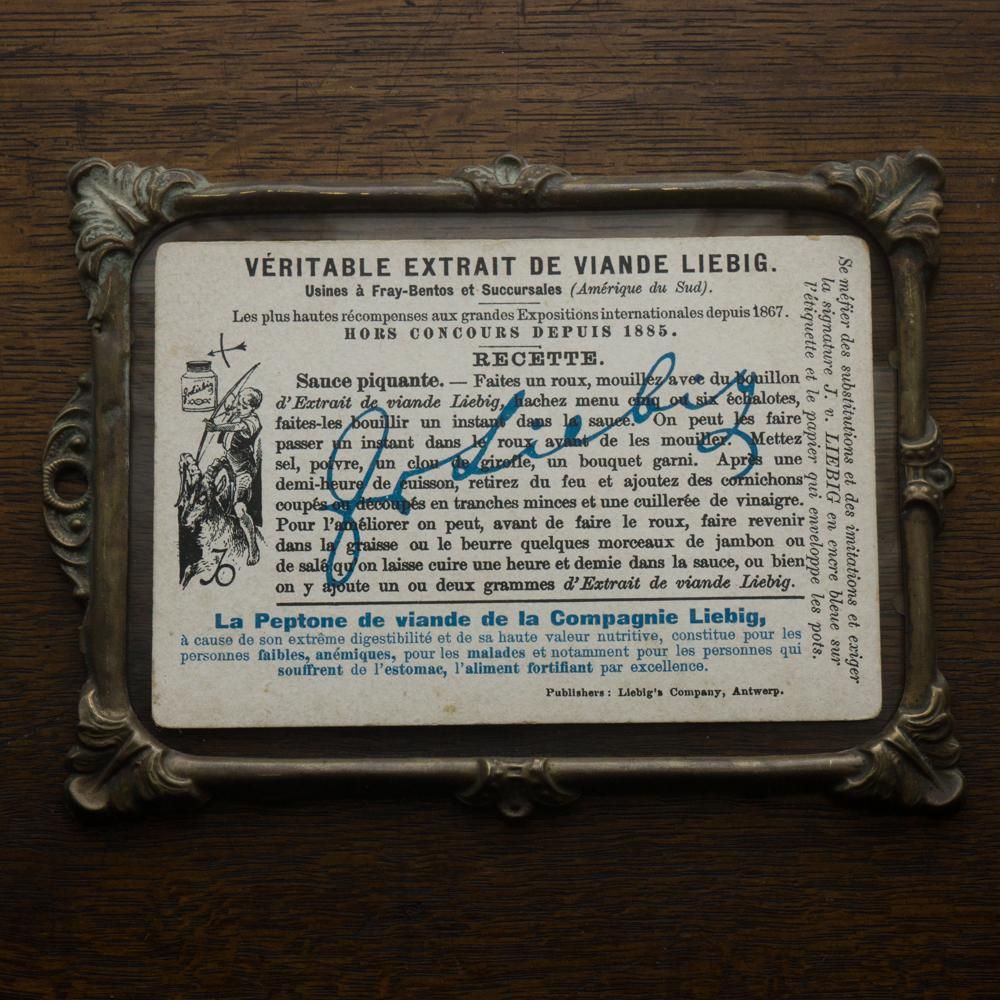 VÉRITABLE EXTRAIT DE VIANDE LIEBIG.
Usines à Fray-Bentos et Succursales (Amérique du Sud).
Les plus hautes récompenses aux grandes Expositions internationales depuis 1867.
HORS CONCOURS DEPUIS 1885.
RECETTE.
Sauce piquante. — Faites un roux, mouillez avec du bouillon
d'Extrait de viande Liebig, hachez menu cinq ou six échalotes,
faites-les bouillir un instant dans la sauce. On peut les faire
passer un instant dans le roux avant de les mouiller. Mettez
sel, poivre, un clou de girofle, un bouquet garni. Après une
demi-heure de cuisson, retirez du feu et ajoutez des cornichons
coupés ou découpés en tranches minces et une cuillerée de vinaigre.
Pour l'améliorer on peut, avant de faire le roux, faire revenir
dans la graisse ou le beurre quelques morceaux de jambon ou
de salé qu'on laisse cuire une heure et demie dans la sauce, ou bien
on y ajoute un ou deux grammes d'Extrait de viande Liebig.
La Peptone de viande de la Compagnie Liebig,
à cause de son extrême digestibilité et de sa haute valeur nutritive, constitue pour les
personnes faibles, anémiques, pour les malades et notamment pour les personnes qui
souffrent de l'estomac, l'aliment fortifiant par excellence.
Publishers: Liebig's Company, Antwerp.
Se méfier des substitutions et des imitations et exiger
la signature J. v. LIEBIG en encre bleue sur
l'étiquette et le papier qui enveloppe les pots.
JvLiebig